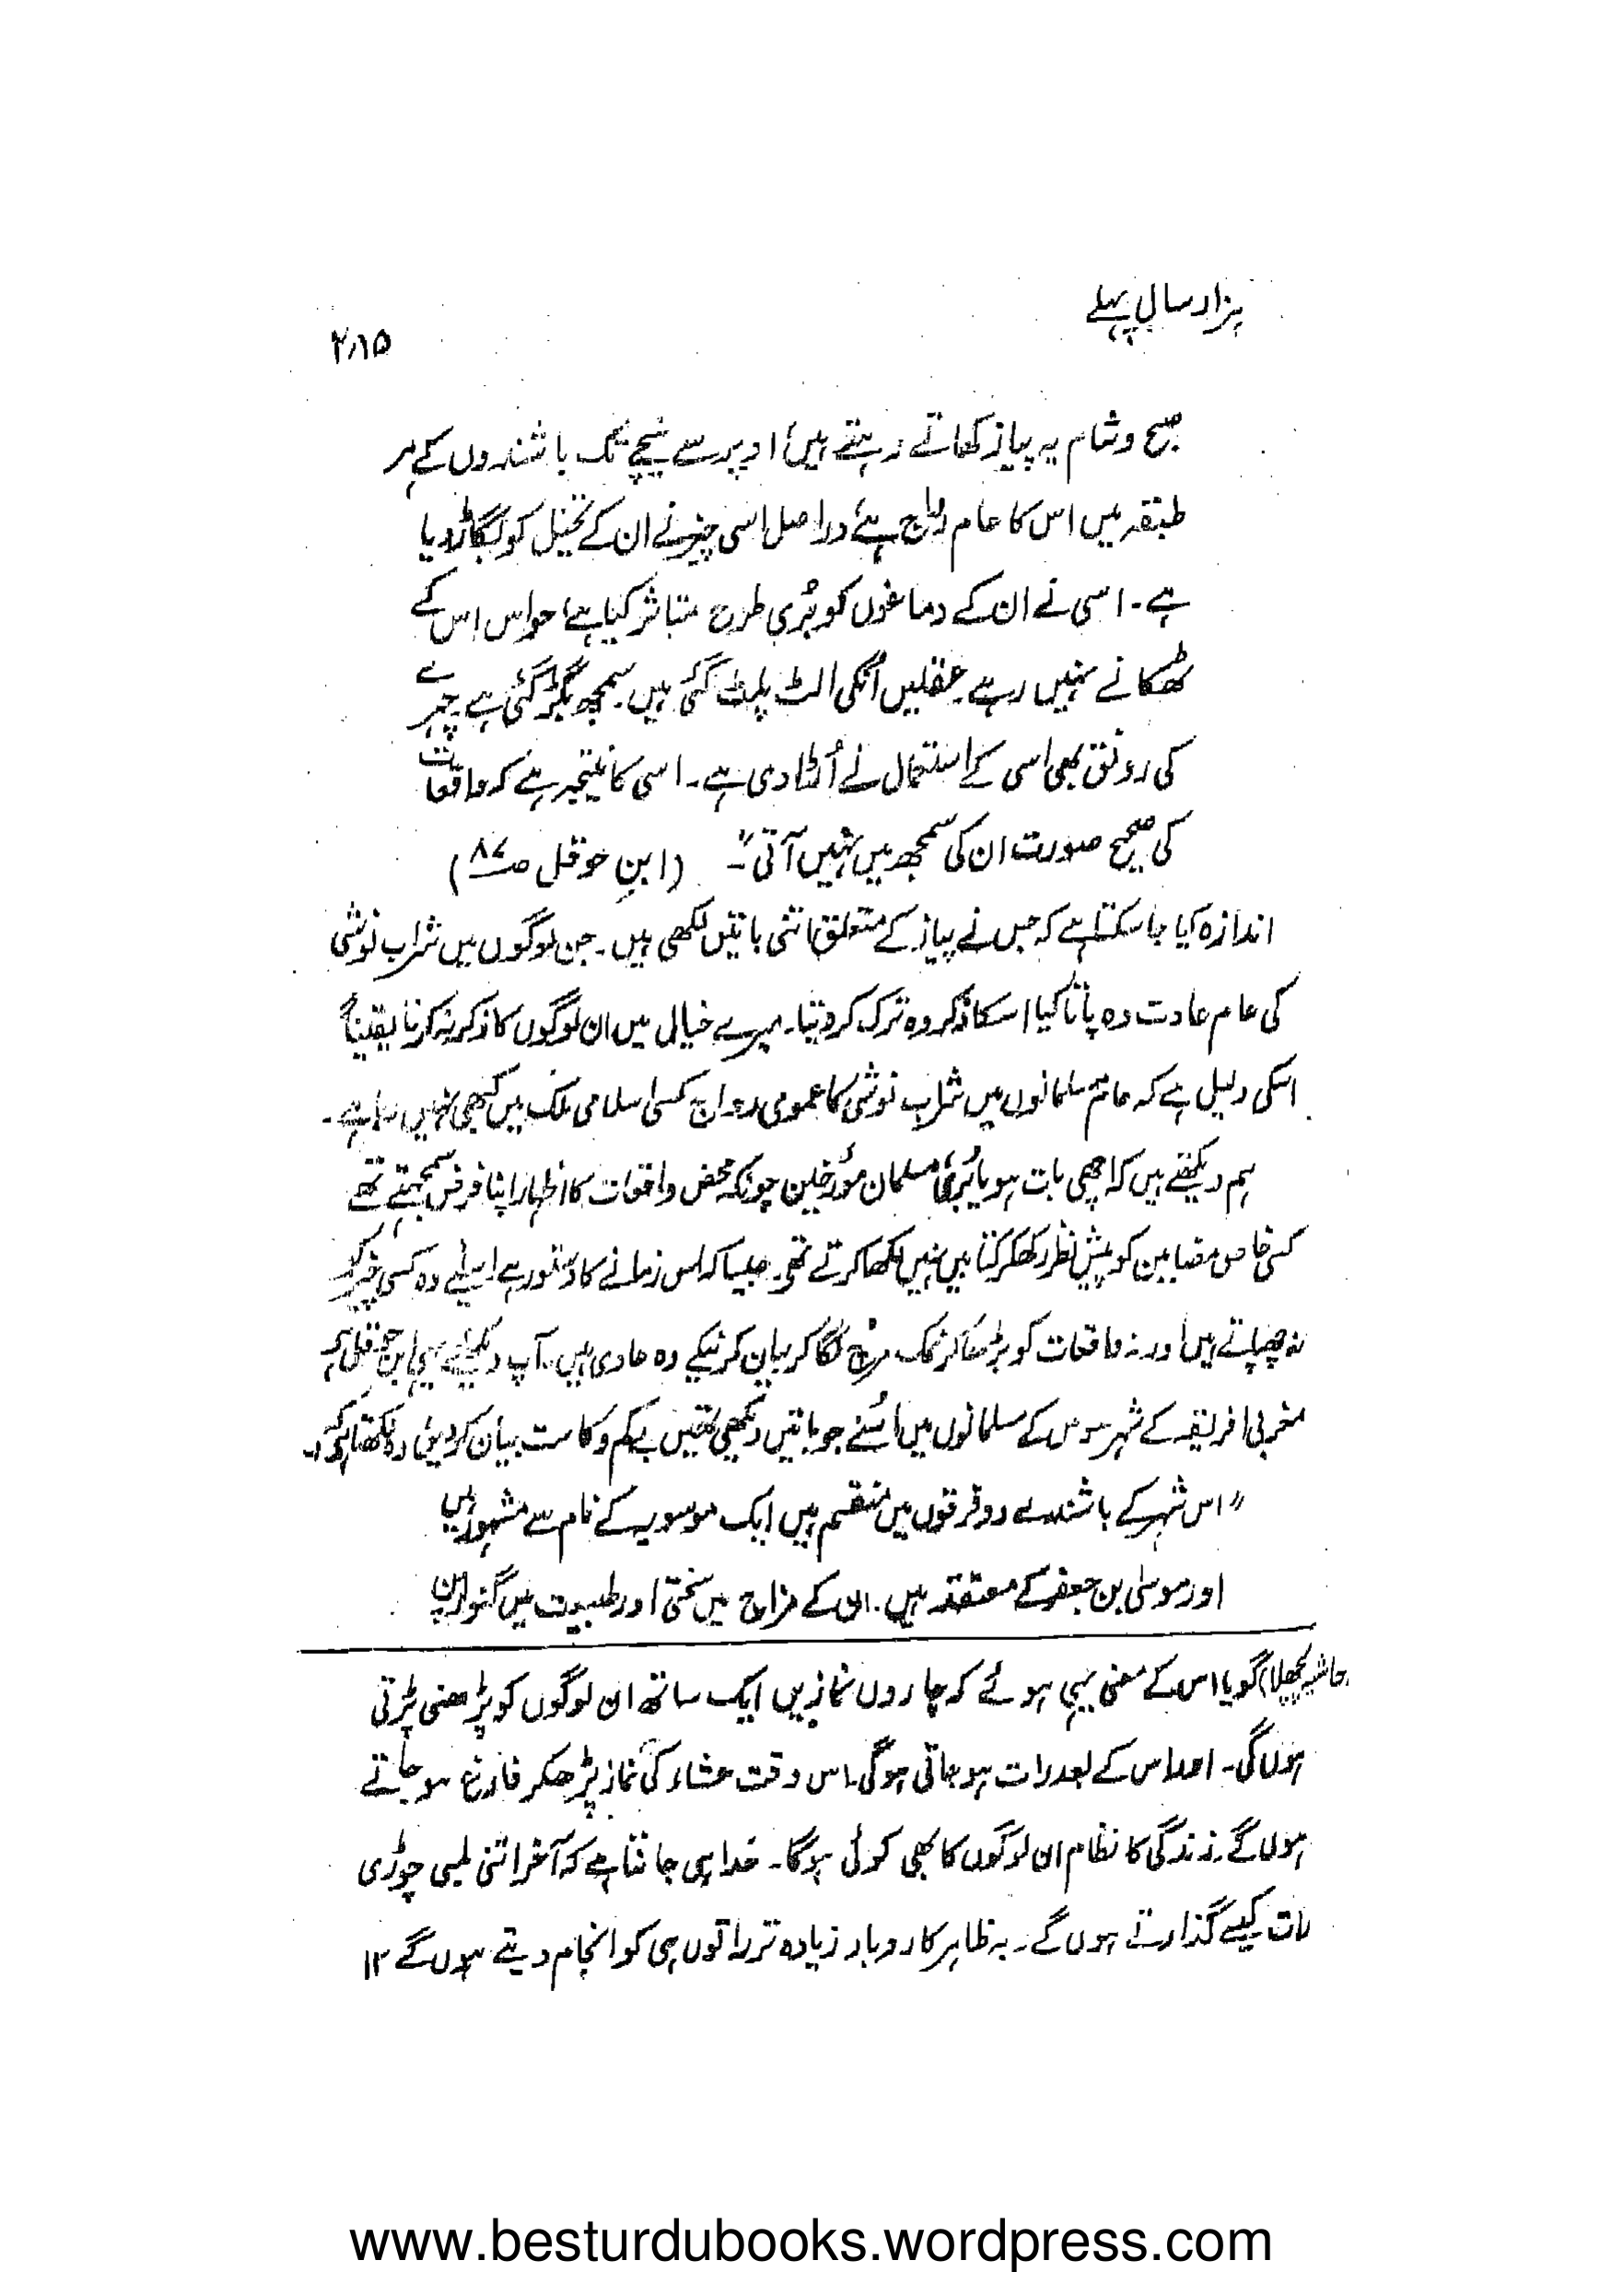 ہزار سال پہلے
۲۸۵
صبح و شام یہ پیاز کھاتے رہتے ہیں، اوپر سے نیچے تک باشندوں کے ہر
طبقہ میں اس کا عام رواج ہے، دراصل اسی چیز نے ان کے تخیل کو بگاڑ دیا
ہے۔ اسی نے ان کے دماغوں کو بُری طرح متاثر کیا ہے، حواس اس کے
ٹھکانے نہیں رہے۔ عقلیں انکی الٹ پلٹ گئی ہیں۔ سمجھ بگڑ گئی ہے۔ چہرے
کی رونق بھی اسی کے استعمال نے اُڑا دی ہے۔ اسی کا نتیجہ ہے کہ واقعات
کی صحیح صورت ان کی سمجھ میں نہیں آتی"۔ (ابنِ حوقل ص۸۷)
اندازہ کیا جا سکتا ہے کہ جس نے پیاز کے متعلق اتنی باتیں لکھی ہیں۔ جن لوگوں میں شراب نوشی
کی عام عادت وہ پاتا کیا اسکا ذکر وہ ترک کر دیتا۔ میرے خیال میں ان لوگوں کا ذکر نہ کرنا یقیناً
اسکی دلیل ہے کہ عام مسلمانوں میں شراب نوشی کا عمومی رواج کسی اسلامی ملک میں کبھی نہیں رہا ہے۔
ہم دیکھتے ہیں کہ اچھی بات ہو یا بُری، مسلمان مؤرخین چونکہ محض واقعات کا اظہار اپنا فرض سمجھتے تھے
کسی خاص مضامین کو پیش نظر رکھکر کتابیں نہیں لکھا کرتے تھے۔ جیسا کہ اس زمانے کا دستور ہے اسلئے وہ کسی چیز کو
نہ چھپاتے ہیں اور نہ واقعات کو بڑھا کر نمک مرچ لگا کر بیان کرنیکے وہ عادی ہیں۔ آپ دیکھئے یہی ابن حوقل ہے
مغربی افریقہ کے شہر سوس کے مسلمانوں میں اُسنے جو باتیں دیکھی تھیں بے کم و کاست بیان کر دیں، وہ لکھتا ہے کہ:۔
"اس شہر کے باشندے دو فرقوں میں منقسم ہیں ایک موسویہ کے نام سے مشہور ہیں
اور موسیٰ بن جعفر کے معتقد ہیں۔ ان کے مزاج میں سختی اور طبیعت میں گنوار پن
(حاشیہ پچھلا) گویا اس کے معنی یہی ہوئے کہ چاروں نمازیں ایک ساتھ ان لوگوں کو پڑھنی پڑتی
ہوں گی۔ اور اس کے بعد رات ہو جاتی ہوگی۔ اس وقت عشاء کی نماز پڑھکر فارغ ہو جاتے
ہوں گے۔ زندگی کا نظام ان لوگوں کا بھی کوئی ہوگا۔ خدا ہی جانتا ہے کہ آخر اتنی لمبی چوڑی
رات کیسے گذارتے ہوں گے۔ بہ ظاہر کاروبار زیادہ تر راتوں ہی کو انجام دیتے ہوں گے ۱۲
www.besturdubooks.wordpress.com